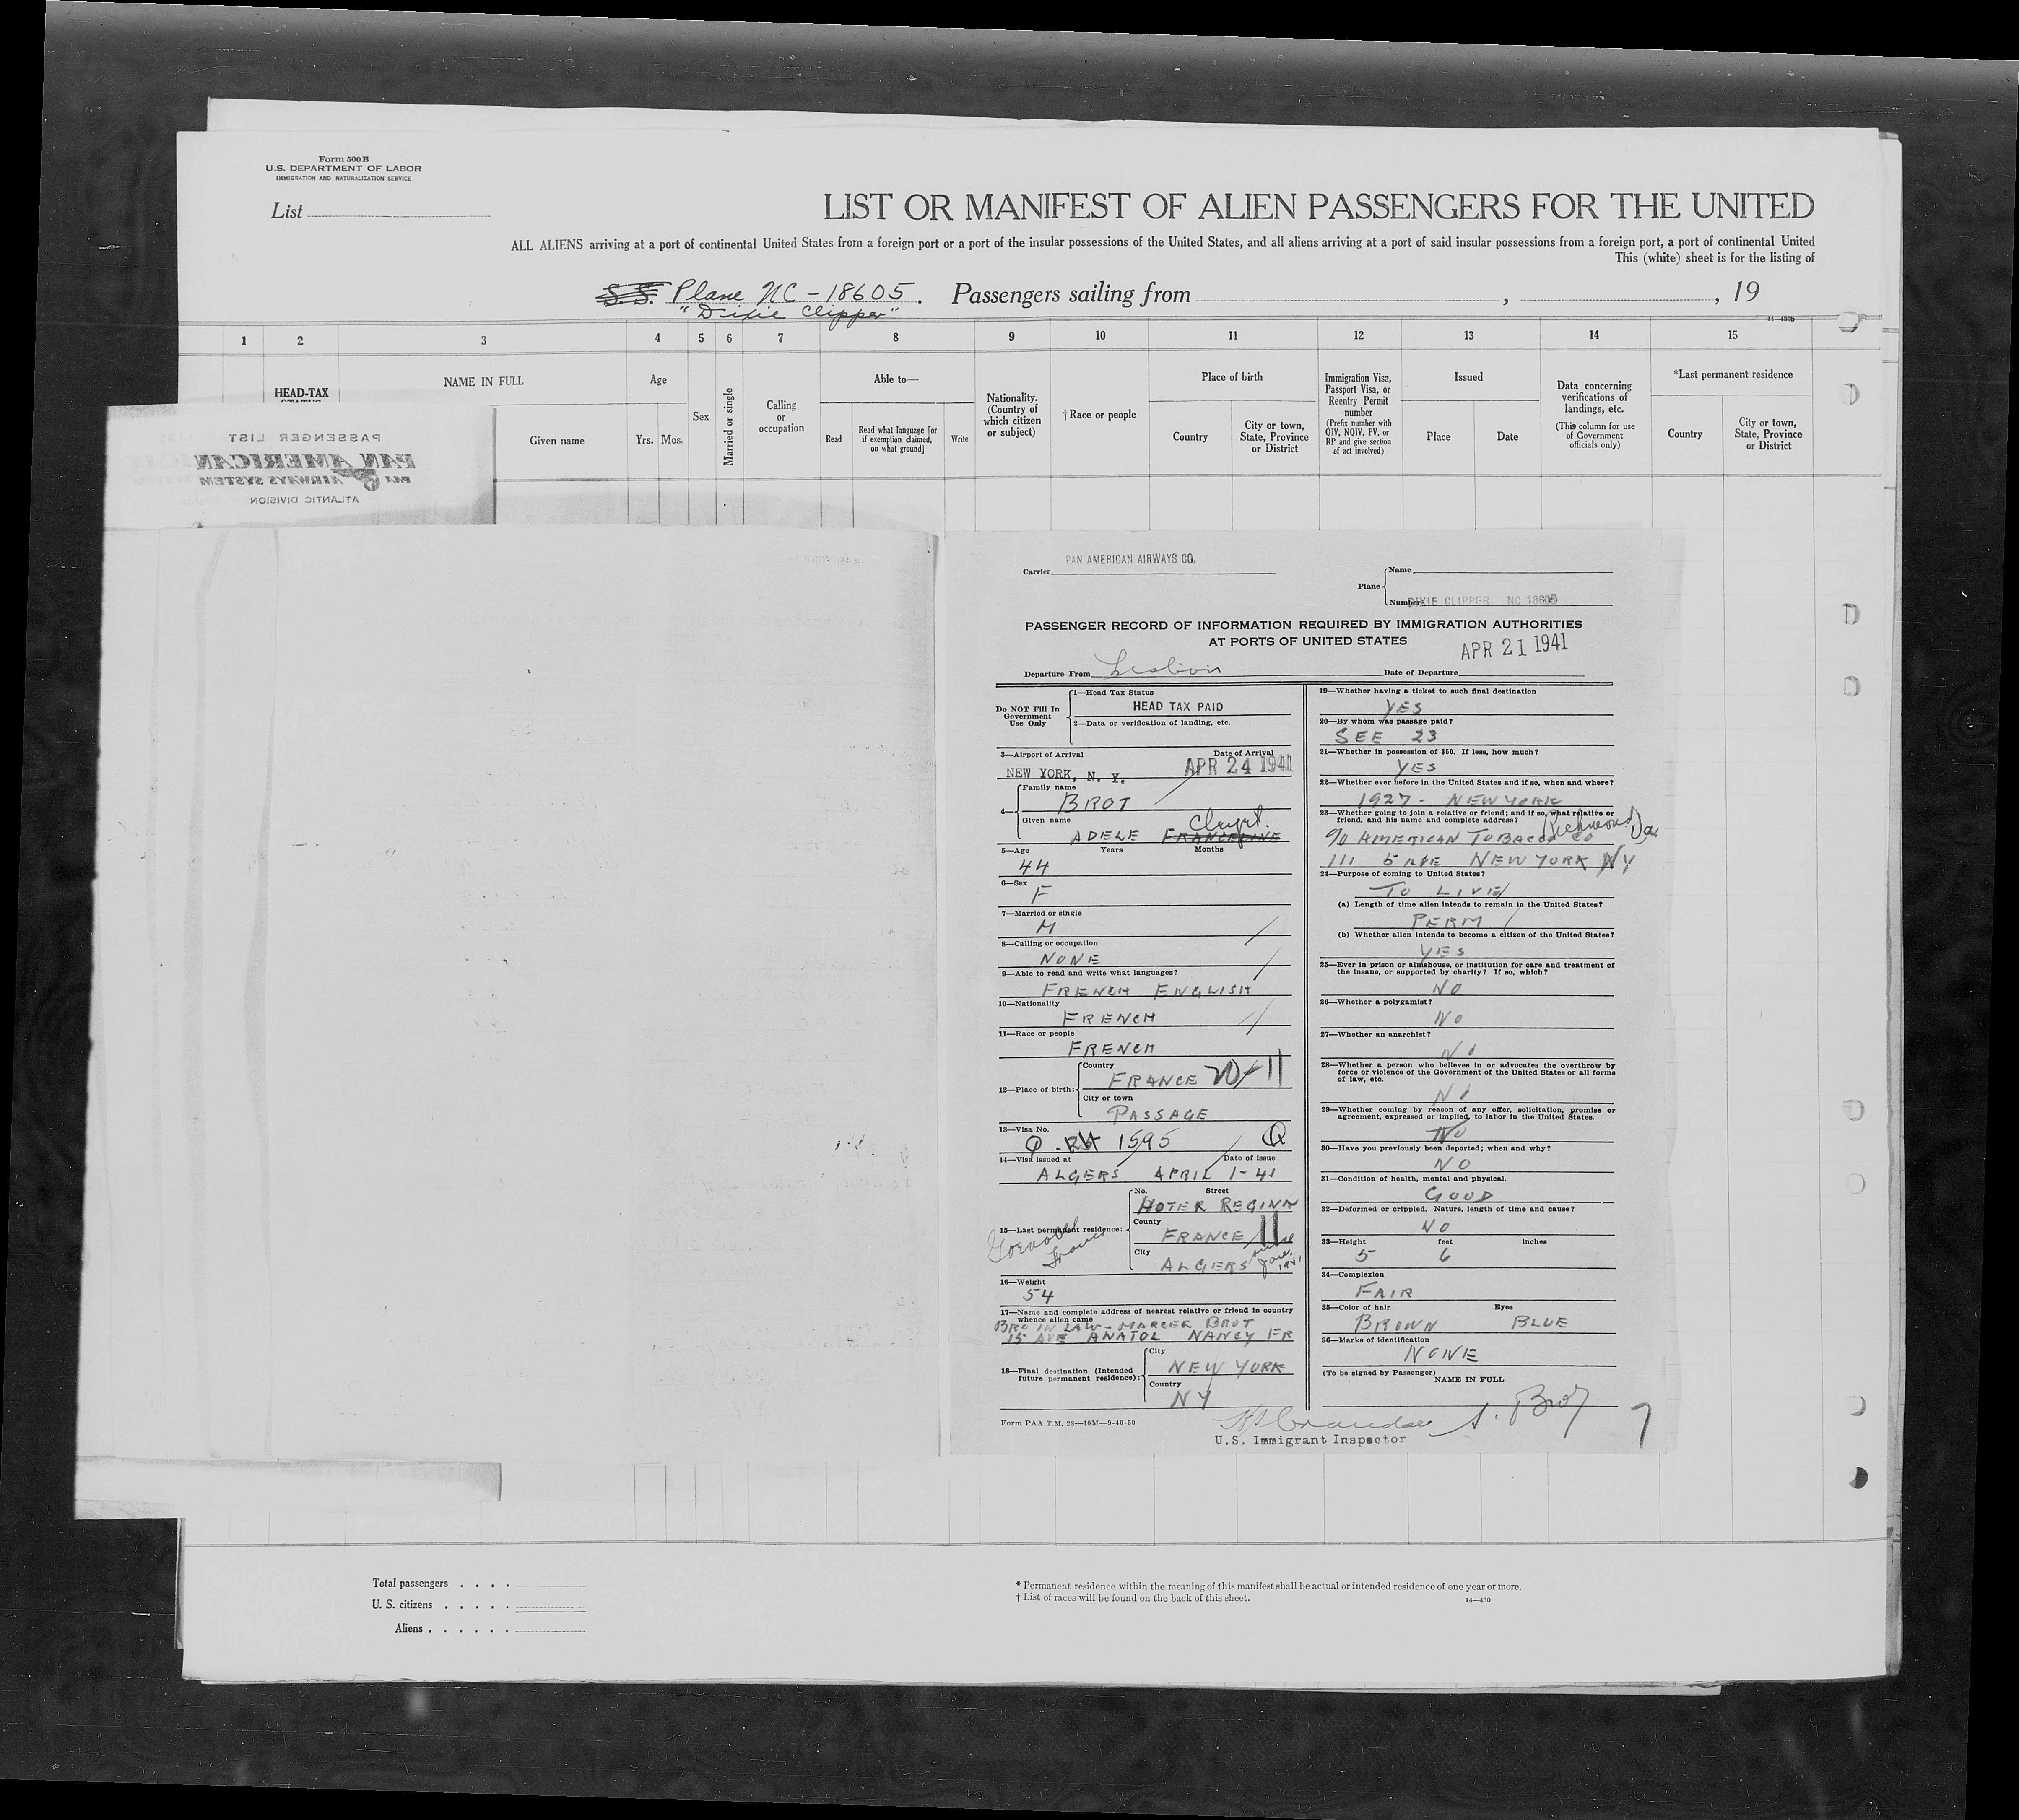 Form 500 B
U.S. DEPARTMENT OF LABOR
IMMIGRATION AND NATURALIZATION SERVICE
List
LIST OR MANIFEST OF ALIEN PASSENGERS FOR THE UNITED
ALL ALIENS arriving at a port of continental United States from a foreign port or a port of the insular possessions of the United States, and all aliens arriving at a port of said insular possessions from a foreign port, a port of continental United
This (white) sheet is for the listing of
S.S. Plane NC-18605. Passengers sailing from , , 19
"Dixie Clipper"
14-430b
1 2 3 4 5 6 7 8 9 10 11 12 13 14 15
HEAD-TAX
NAME IN FULL
Given name
Age
Yrs. Mos.
Sex
Married or single
Calling
or
occupation
Able to—
Read
Read what language [or
if exemption claimed,
on what ground]
Write
Nationality.
(Country of
which citizen
or subject)
† Race or people
Place of birth
Country
City or town,
State, Province
or District
Immigration Visa,
Passport Visa, or
Reentry Permit
number
(Prefix number with
QIV, NQIV, PV, or
RP and give section
of act involved)
Issued
Place
Date
Data concerning
verifications of
landings, etc.
(This column for use
of Government
officials only)
*Last permanent residence
Country
City or town,
State, Province
or District
PASSENGER LIST
PAN AMERICAN
PAA AIRWAYS SYSTEM
ATLANTIC DIVISION
Carrier PAN AMERICAN AIRWAYS CO.
Plane
Name
Number DIXIE CLIPPER NC 18605
PASSENGER RECORD OF INFORMATION REQUIRED BY IMMIGRATION AUTHORITIES
AT PORTS OF UNITED STATES
APR 21 1941
Departure From Lisbon Date of Departure
Do NOT Fill In
Government
Use Only
1—Head Tax Status
HEAD TAX PAID
2—Data or verification of landing, etc.
3—Airport of Arrival Date of Arrival
NEW YORK, N. Y. APR 24 1941
4—
Family name
BROT
Given name
ADELE FRANCELINE
5—Age Years Months
44
6—Sex
F
7—Married or single
M
8—Calling or occupation
NONE
9—Able to read and write what languages?
FRENCH ENGLISH
10—Nationality
FRENCH
11—Race or people
FRENCH
12—Place of birth:
Country
FRANCE
City or town
PASSAGE
13—Visa No.
Q 1595 Q
14—Visa issued at Date of issue
ALGERS APRIL 1-41
15—Last permanent residence:
No. Street
HOTER REGINA
County
FRANCE
City
ALGERS since Jan. 1941
France
16—Weight
54
17—Name and complete address of nearest relative or friend in country
whence alien came
BRO IN LAW - MARCER BROT
15 AVE ANATOL NANCY FR
18—Final destination (Intended
future permanent residence):
City
NEW YORK
Country
NY
Form PAA T.M. 28—10M—9-40-50
19—Whether having a ticket to such final destination
YES
20—By whom was passage paid?
SEE 23
21—Whether in possession of $50. If less, how much?
YES
22—Whether ever before in the United States and if so, when and where?
1927 - NEW YORK
23—Whether going to join a relative or friend; and if so, what relative or
friend, and his name and complete address?
Richmond, Va
c/o AMERICAN TOBACCO CO
111 5 AVE NEW YORK NY
24—Purpose of coming to United States?
TO LIVE
(a) Length of time alien intends to remain in the United States?
PERM
(b) Whether alien intends to become a citizen of the United States?
YES
25—Ever in prison or almshouse, or institution for care and treatment of
the insane, or supported by charity? If so, which?
NO
26—Whether a polygamist?
NO
27—Whether an anarchist?
NO
28—Whether a person who believes in or advocates the overthrow by
force or violence of the Government of the United States or all forms
of law, etc.
NO
29—Whether coming by reason of any offer, solicitation, promise or
agreement, expressed or implied, to labor in the United States.
NO
30—Have you previously been deported; when and why?
NO
31—Condition of health, mental and physical.
GOOD
32—Deformed or crippled. Nature, length of time and cause?
NO
33—Height feet inches
5 6
34—Complexion
FAIR
35—Color of hair Eyes
BROWN BLUE
36—Marks of identification
NONE
(To be signed by Passenger)
NAME IN FULL
A. Brot
U.S. Immigrant Inspector
7
Total passengers . . . .
U. S. citizens . . . . .
Aliens . . . . . .
* Permanent residence within the meaning of this manifest shall be actual or intended residence of one year or more.
† List of races will be found on the back of this sheet.
14—430